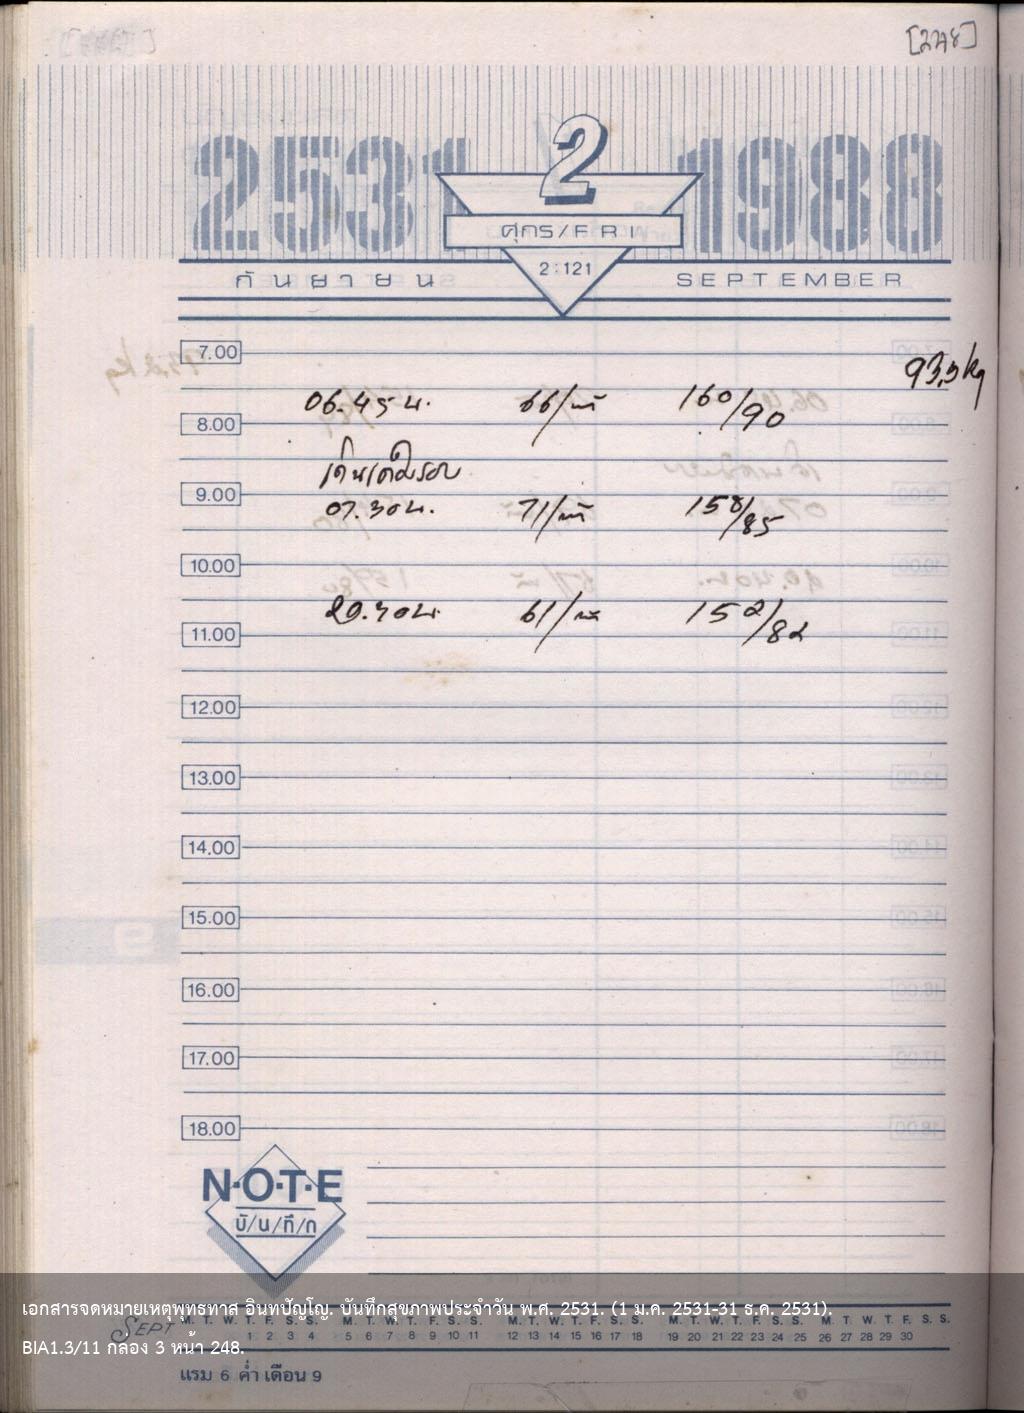 [248]
2531 2 1988
ศุกร์/FRI
2:121
กันยายน SEPTEMBER
7.00
93.5 kg
06.45 น. 66/นาที 160/90
8.00
เดินเต็มรอบ
9.00
07.30 น. 71/นาที 158/85
10.00
20.30 น. 61/นาที 152/82
11.00
12.00
13.00
14.00
15.00
16.00
17.00
18.00
N·O·T·E
บั/น/ทึ/ก
เอกสารจดหมายเหตุพุทธทาส อินทปัญโญ. บันทึกสุขภาพประจำวัน พ.ศ. 2531. (1 ม.ค. 2531-31 ธ.ค. 2531).
SEPT M. T. W. T. F. S. S. M. T. W. T. F. S. S. M. T. W. T. F. S. S. M. T. W. T. F. S. S. M. T. W. T. F. S. S.
1 2 3 4 5 6 7 8 9 10 11 12 13 14 15 16 17 18 19 20 21 22 23 24 25 26 27 28 29 30
BIA1.3/11 กล่อง 3 หน้า 248.
แรม 6 ค่ำ เดือน 9